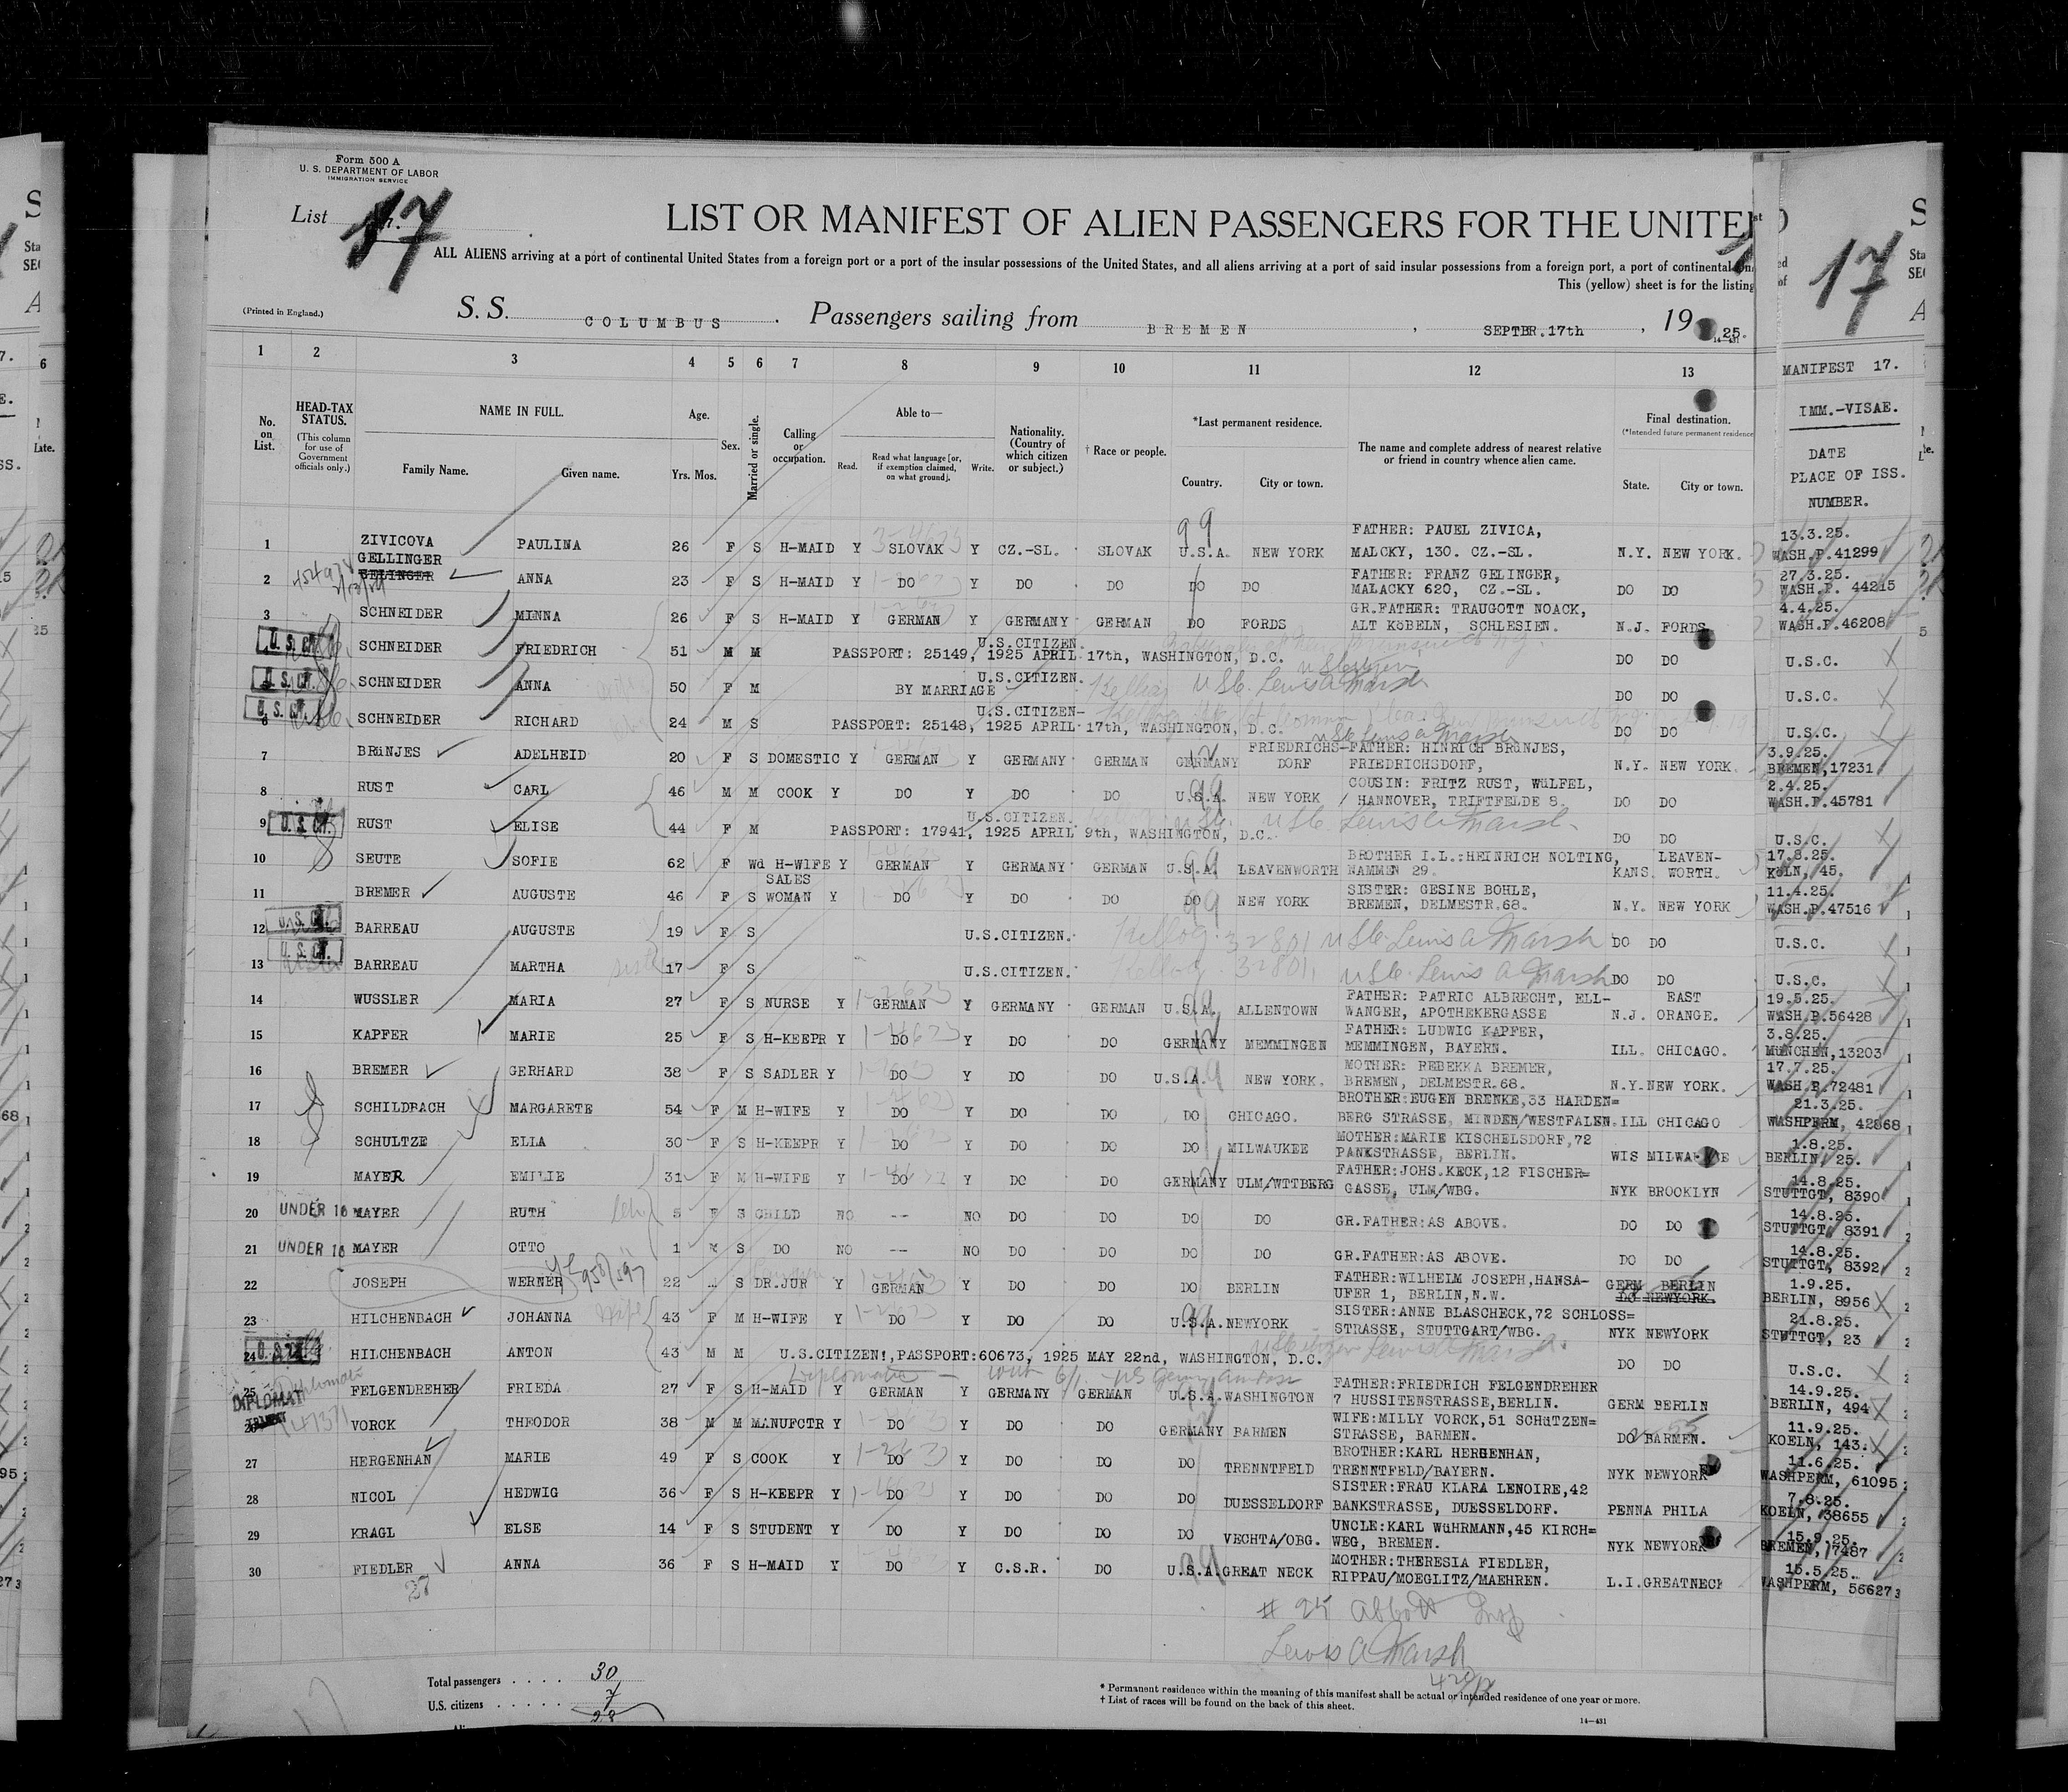 Form 500 A
U. S. DEPARTMENT OF LABOR
IMMIGRATION SERVICE
List 17
LIST OR MANIFEST OF ALIEN PASSENGERS FOR THE UNITED
ALL ALIENS arriving at a port of continental United States from a foreign port or a port of the insular possessions of the United States, and all aliens arriving at a port of said insular possessions from a foreign port, a port of continental
This (yellow) sheet is for the listing
(Printed in England.)
S. S. COLUMBUS. Passengers sailing from BREMEN, SEPTBR.17th, 1925.
14—431
17
1 2 3 4 5 6 7 8 9 10 11 12 13
MANIFEST 17.
No. on List.
HEAD-TAX STATUS.
(This column for use of Government officials only.)
NAME IN FULL.
Family Name. Given name.
Age.
Yrs. Mos.
Sex.
Married or single.
Calling or occupation.
Able to—
Read.
Read what language [or, if exemption claimed, on what ground].
Write.
Nationality. (Country of which citizen or subject.)
† Race or people.
*Last permanent residence.
Country. City or town.
The name and complete address of nearest relative or friend in country whence alien came.
Final destination.
(*Intended future permanent residence
State. City or town.
IMM.-VISAE.
DATE
PLACE OF ISS.
NUMBER.
1 ZIVICOVA PAULINA 26 F S H-MAID Y SLOVAK Y CZ.-SL. SLOVAK U.S.A. NEW YORK FATHER: PAUEL ZIVICA, MALCKY, 130. CZ.-SL. N.Y. NEW YORK. 13.3.25. WASH.P.41299
2 GELLINGER GELINGER ANNA 23 F S H-MAID Y DO Y DO DO DO DO FATHER: FRANZ GELINGER, MALACKY 620, CZ.-SL. DO DO 27.3.25. WASH.P. 44215
3 SCHNEIDER MINNA 26 F S H-MAID Y GERMAN Y GERMANY GERMAN DO FORDS GR.FATHER: TRAUGOTT NOACK, ALT KöBELN, SCHLESIEN. N.J. FORDS 4.4.25. WASH.P.46208
U.S. CIT. SCHNEIDER FRIEDRICH 51 M M U.S.CITIZEN. PASSPORT: 25149, 1925 APRIL 17th, WASHINGTON, D.C. DO DO U.S.C.
U.S. CIT. SCHNEIDER ANNA 50 F M U.S.CITIZEN. BY MARRIAGE USC. Lewis A Marsh DO DO U.S.C.
U.S. CIT. 6 SCHNEIDER RICHARD 24 M S U.S.CITIZEN- PASSPORT: 25148, 1925 APRIL 17th, WASHINGTON, D.C. USC Lewis A Marsh DO DO U.S.C.
7 BRüNJES ADELHEID 20 F S DOMESTIC Y GERMAN Y GERMANY GERMAN GERMANY FRIEDRICHS-DORF FATHER: HINRICH BRüNJES, FRIEDRICHSDORF, N.Y. NEW YORK. 3.9.25. BREMEN,17231
8 RUST CARL 46 M M COOK Y DO Y DO DO U.S.A. NEW YORK COUSIN: FRITZ RUST, WüLFEL, HANNOVER, TRIFTFELDE 8. DO DO 2.4.25. WASH.P.45781
9 U.S. CIT. RUST ELISE 44 F M U.S.CITIZEN. PASSPORT: 17941, 1925 APRIL 9th, WASHINGTON, D.C. USC Lewis A Marsh DO DO U.S.C.
10 SEUTE SOFIE 62 F Wd H-WIFE Y GERMAN Y GERMANY GERMAN U.S.A. LEAVENWORTH BROTHER I.L.:HEINRICH NOLTING, NAMMEN 29. KANS. LEAVEN-WORTH. 17.8.25. KöLN, 45.
11 BREMER AUGUSTE 46 F S SALES WOMAN Y DO Y DO DO DO NEW YORK SISTER: GESINE BOHLE, BREMEN, DELMESTR.68. N.Y. NEW YORK 11.4.25. WASH.P.47516
12 U.S. CIT. BARREAU AUGUSTE 19 F S U.S.CITIZEN. Kellog 32801 USC Lewis A Marsh DO DO U.S.C.
13 U.S. CIT. BARREAU MARTHA sister 17 F S U.S.CITIZEN. Kellog 32801 USC Lewis A Marsh DO DO U.S.C.
14 WUSSLER MARIA 27 F S NURSE Y GERMAN Y GERMANY GERMAN U.S.A. ALLENTOWN FATHER: PATRIC ALBRECHT, ELL-WANGER, APOTHEKERGASSE N.J. EAST ORANGE. 19.5.25. WASH.P.56428
15 KAPFER MARIE 25 F S H-KEEPR Y DO Y DO DO GERMANY MEMMINGEN FATHER: LUDWIG KAPFER, MEMMINGEN, BAYERN. ILL. CHICAGO. 3.8.25. MüNCHEN,13203
16 BREMER GERHARD 38 F S SADLER Y DO Y DO DO U.S.A. NEW YORK. MOTHER: REBEKKA BREMER, BREMEN, DELMESTR.68. N.Y.NEW YORK. 17.7.25. WASH.P.72481
17 SCHILDBACH MARGARETE 54 F M H-WIFE Y DO Y DO DO DO CHICAGO. BROTHER:EUGEN BRENKE,33 HARDEN=BERG STRASSE, MINDEN/WESTFALEN. ILL CHICAGO 21.3.25. WASHPERM, 42868
18 SCHULTZE ELLA 30 F S H-KEEPR Y DO Y DO DO DO MILWAUKEE MOTHER:MARIE KISCHELSDORF,72 PANKSTRASSE, BERLIN. WIS MILWAUKEE 1.8.25. BERLIN, 25.
19 MAYER EMILIE 31 F M H-WIFE Y DO Y DO DO GERMANY ULM/WTTBERG FATHER:JOHS.KECK,12 FISCHER=GASSE, ULM/WBG. NYK BROOKLYN 14.8.25. STUTTGT, 8390
20 UNDER 16 MAYER RUTH 5 F S CHILD NO -- NO DO DO DO DO GR.FATHER:AS ABOVE. DO DO 14.8.25. STUTTGT, 8391
21 UNDER 16 MAYER OTTO 1 M S DO NO -- NO DO DO DO DO GR.FATHER:AS ABOVE. DO DO 14.8.25. STUTTGT, 8392
22 JOSEPH WERNER 22 S DR.JUR Y GERMAN Y DO DO DO BERLIN FATHER:WILHELM JOSEPH,HANSA-UFER 1, BERLIN,N.W. GERM BERLIN DO NEWYORK. 1.9.25. BERLIN, 8956
23 HILCHENBACH JOHANNA wife 43 F M H-WIFE Y DO Y DO DO U.S.A. NEWYORK SISTER:ANNE BLASCHECK,72 SCHLOSS=STRASSE, STUTTGART/WBG. NYK NEWYORK 21.8.25. STUTTGT, 23
24 HILCHENBACH ANTON 43 M M U.S.CITIZEN!,PASSPORT:60673, 1925 MAY 22nd, WASHINGTON, D.C. DO DO U.S.C.
25 DIPLOMAT FELGENDREHER FRIEDA 27 F S H-MAID Y GERMAN Y GERMANY GERMAN U.S.A. WASHINGTON FATHER:FRIEDRICH FELGENDREHER 7 HUSSITENSTRASSE,BERLIN. GERM BERLIN 14.9.25. BERLIN, 494
26 VORCK THEODOR 38 M M MANUFCTR Y DO Y DO DO GERMANY BARMEN WIFE:MILLY VORCK,51 SCHüTZEN=STRASSE, BARMEN. DO BARMEN. 11.9.25. KOELN, 143.
27 HERGENHAN MARIE 49 F S COOK Y DO Y DO DO DO TRENNTFELD BROTHER:KARL HERGENHAN, TRENNTFELD/BAYERN. NYK NEWYORK 11.6.25. WASHPERM, 61095
28 NICOL HEDWIG 36 F S H-KEEPR Y DO Y DO DO DO DUESSELDORF SISTER:FRAU KLARA LENOIRE,42 BANKSTRASSE, DUESSELDORF. PENNA PHILA 7.8.25. KOELN, 38655
29 KRAGL ELSE 14 F S STUDENT Y DO Y DO DO DO VECHTA/OBG. UNCLE:KARL WüHRMANN,45 KIRCH=WEG, BREMEN. NYK NEWYORK 15.9.25. BREMEN,17487
30 FIEDLER ANNA 36 F S H-MAID Y DO Y C.S.R. DO U.S.A. GREAT NECK MOTHER:THERESIA FIEDLER, RIPPAU/MOEGLITZ/MAEHREN. L.I.GREATNECK 15.5.25. WASHPERM, 56627
# 25 Abbott Insp
Lewis A Marsh
Total passengers . . . . 30
U.S. citizens . . . . . . 7
* Permanent residence within the meaning of this manifest shall be actual or intended residence of one year or more.
† List of races will be found on the back of this sheet.
14—431